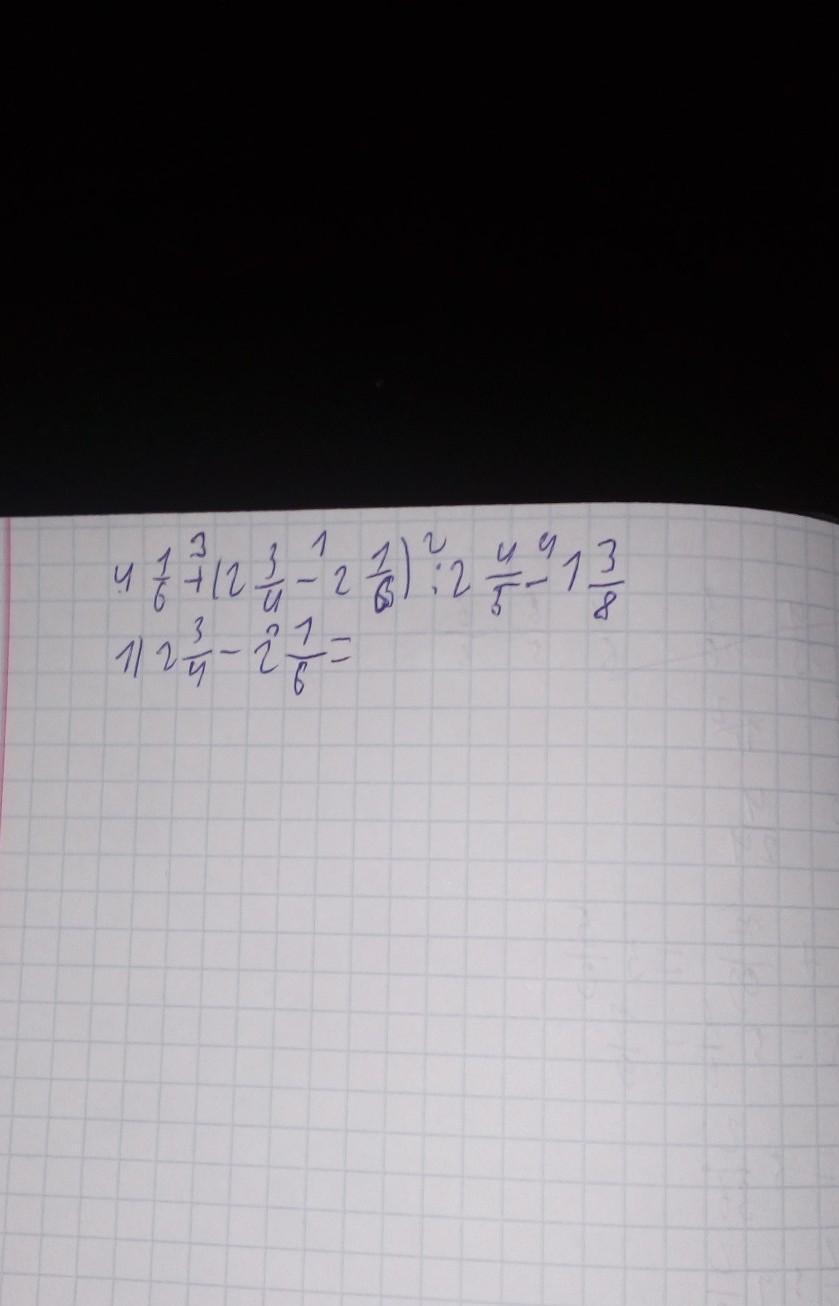 4 1/6 + (2 3/4 - 2 1/6) : 2 4/5 - 1 3/8
1) 2 3/4 - 2 1/6 =